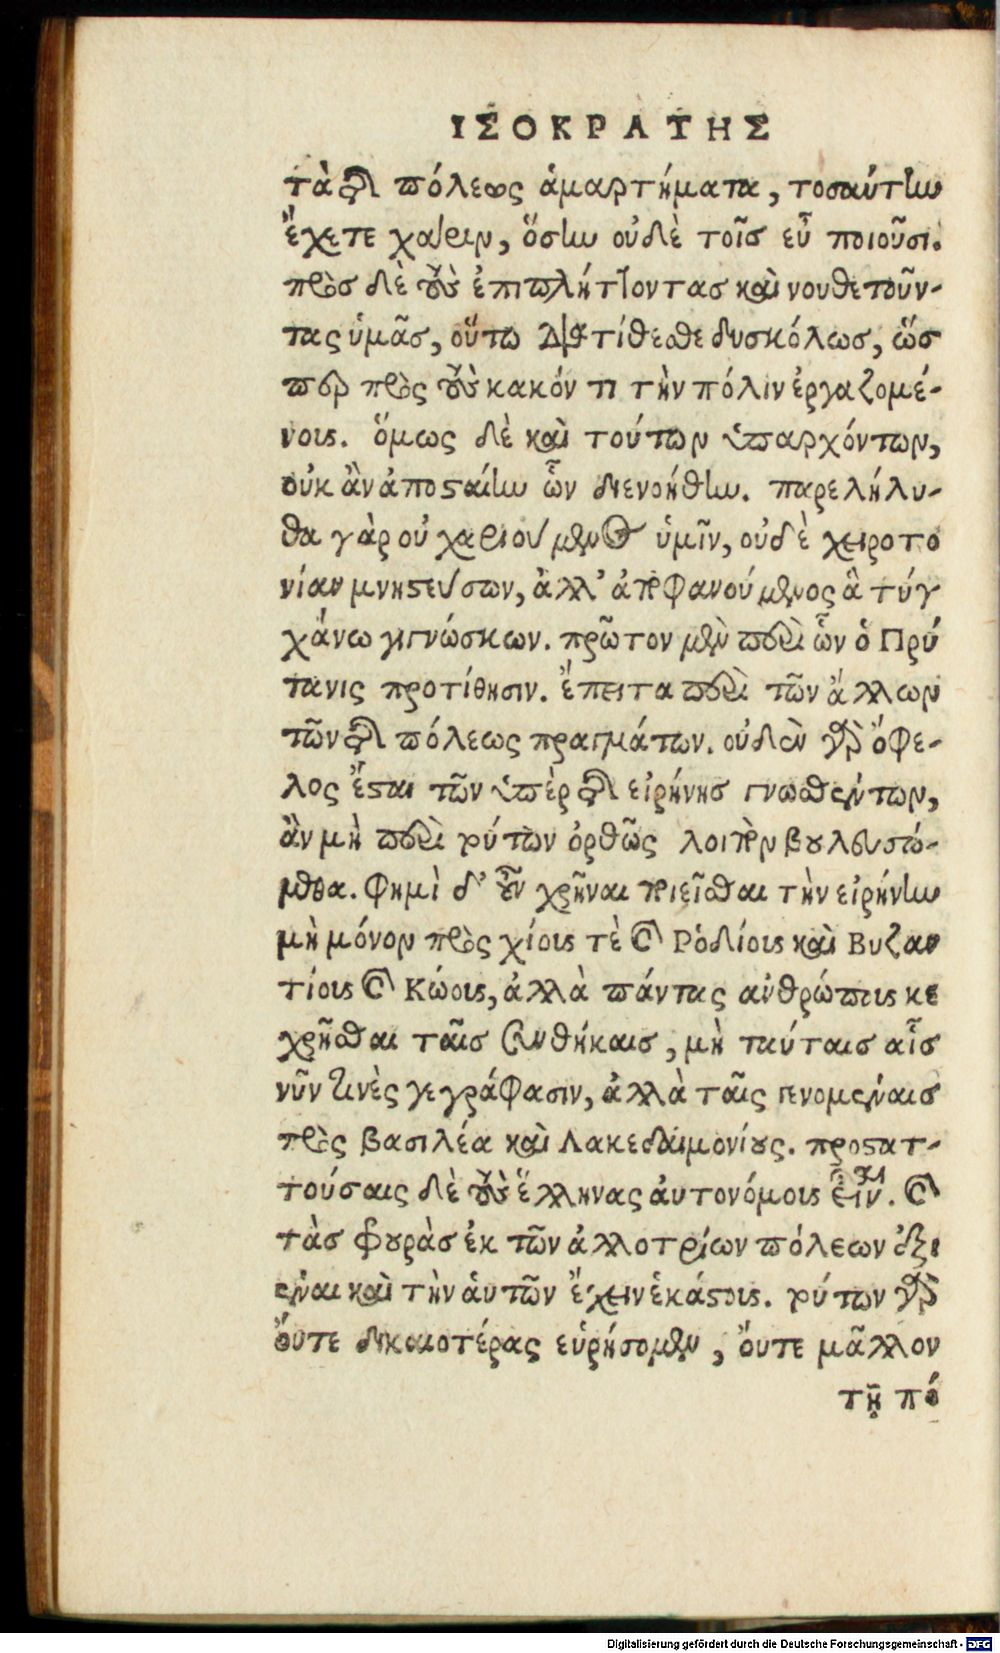 ΙΣΟΚΡΑΤΗΣ
τὰ τῆς πόλεως ἁμαρτήματα, τοσαύτην
ἔχετε χάριν, ὅσην οὐδὲ τοῖς εὖ ποιοῦσι.
πρὸς δὲ τοὺς ἐπιπλήττοντας καὶ νουθετοῦν-
τας ὑμᾶς, οὕτω διατίθεσθε δυσκόλως, ὥσ
περ πρὸς τοὺς κακόν τι τὴν πόλιν ἐργαζομέ-
νους. ὅμως δὲ καὶ τούτων ὑπαρχόντων,
οὐκ ἂν ἀποσταίην ὧν διενοήθην. παρελήλυ-
θα γὰρ οὐ χαριούμενος ὑμῖν, οὐδὲ χειροτο
νίαν μνηστεύσων, ἀλλ' ἀποφανούμενος ἃ τύγ
χάνω γιγνώσκων. πρῶτον μὲν περὶ ὧν ὁ Πρύ
τανις προτίθησιν. ἔπειτα περὶ τῶν ἄλλων
τῶν τῆς πόλεως πραγμάτων. οὐδὲν γὰρ ὄφε-
λος ἔσται τῶν ὑπὲρ τῆς εἰρήνης γνωσθέντων,
ἂν μὴ περὶ τούτων ὀρθῶς λοιπὸν βουλευσώ-
μεθα. Φημὶ δ' οὖν χρῆναι ποιεῖσθαι τὴν εἰρήνην
μὴ μόνον πρὸς χίους τὲ καὶ Ῥοδίους καὶ Βυζαν
τίους καὶ Κώους, ἀλλὰ πάντας ἀνθρώπους κε
χρῆσθαι ταῖς συνθήκαις, μὴ ταύταις αἷς
νῦν τινὲς γεγράφασιν, ἀλλὰ ταῖς γενομέναις
πρὸς βασιλέα καὶ Λακεδαιμονίους. προσατ-
τούσαις δὲ τοὺς ἕλληνας αὐτονόμους εἶναι. καὶ
τὰς φρουρὰς ἐκ τῶν ἀλλοτρίων πόλεων ἐξι
έναι καὶ τὴν ἁυτῶν ἔχειν ἑκάστους. τούτων γὰρ
ὄυτε δικαιοτέρας εὑρήσομεν, ὄυτε μᾶλλον
τῇ πό
Digitalisierung gefördert durch die Deutsche Forschungsgemeinschaft - DFG